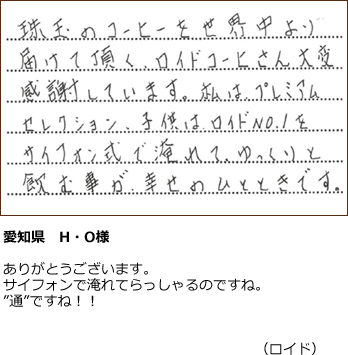 珠玉のコーヒーを世界中より
届けて頂く、ロイドコーヒーさん大変
感謝しています。私は、プレミアム
セレクション、子供は、ロイドNO.1を
サイフォン式で淹れて、ゆっくりと
飲む事が、幸せのひとときです。
愛知県 H・O様
ありがとうございます。
サイフォンで淹れてらっしゃるのですね。
”通”ですね！！
（ロイド）